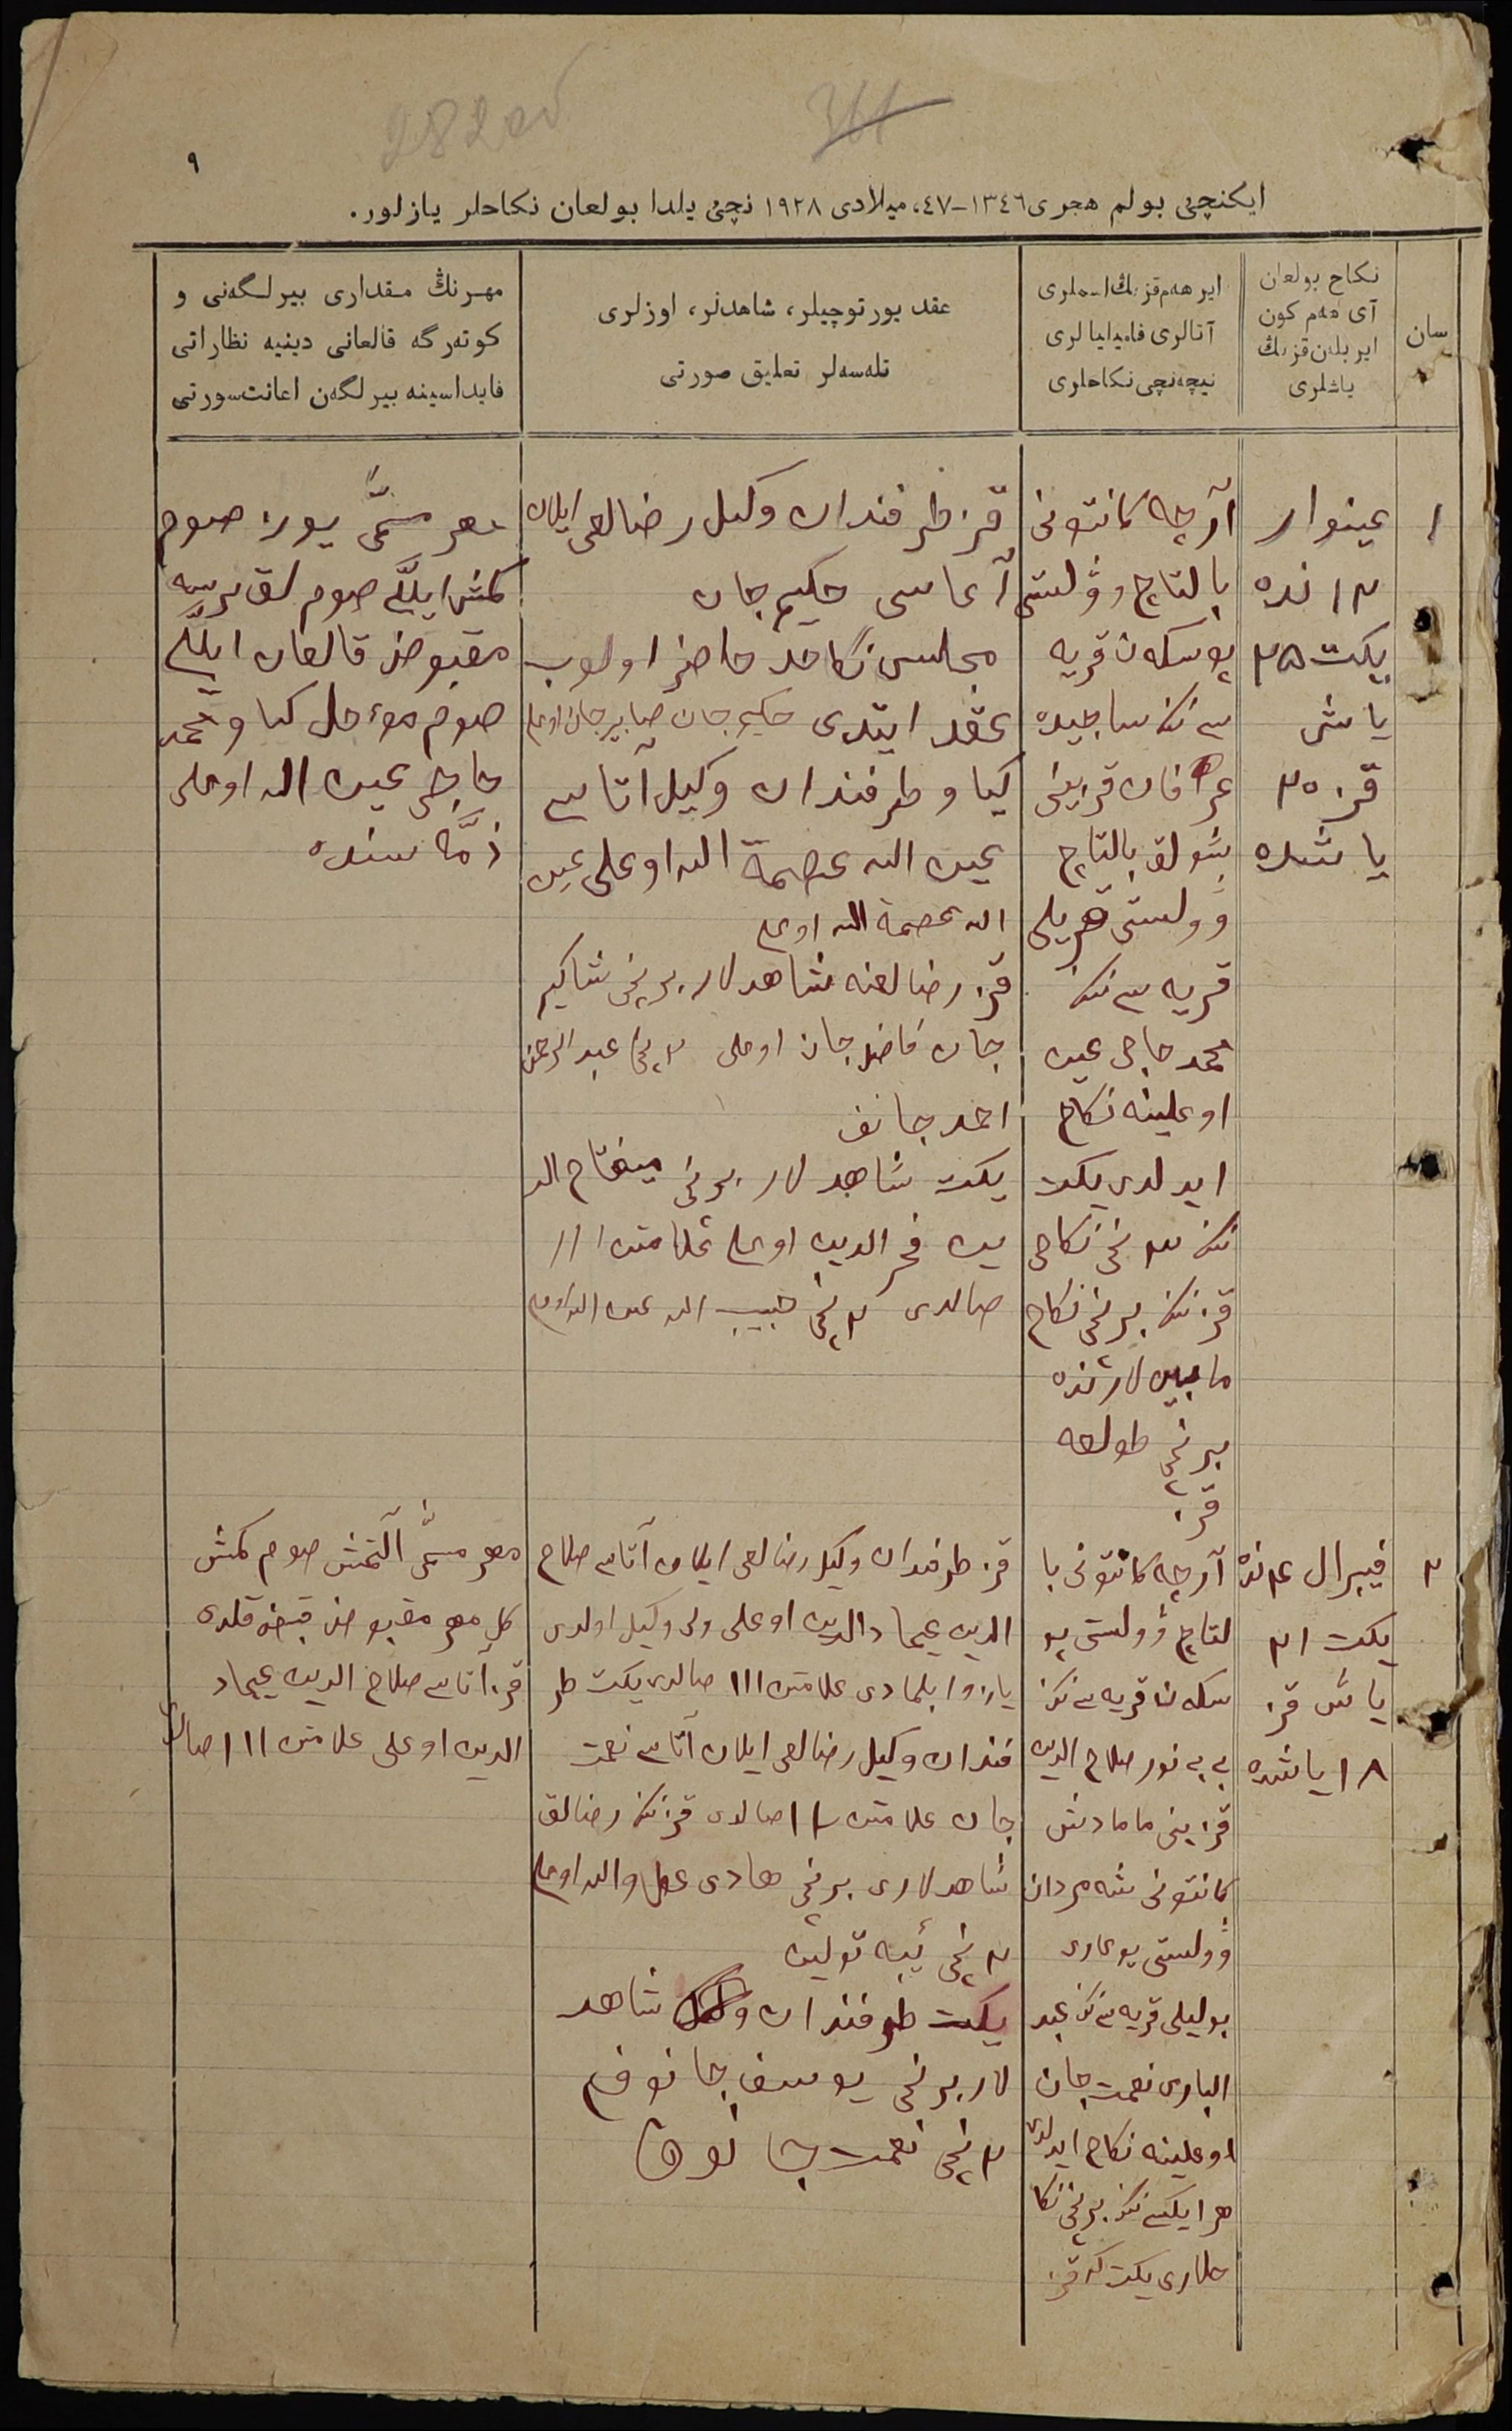 ٩
282об
ایکنچی بولم هجری ١٣٤٦-٤٧، میلادی ١٩٢٨ نچی یلدا بولعان نکاحلر یازلور.
سان
نکاح بولعان
آی هەم کون
ایر بلەن قزنڭ
یاشلری
ایر هەم قزنڭ اسملری
آتالری فامیلیالری
نیچەنچی نکاحلری
عقد یورتوچیلر، شاهدلر، اوزلری
تلەسەلر تعلیق صورتی
مهرنڭ مقداری بیرلگەنی و
کوتەرگە قالعانی دینیە نظاراتی
فایداسینە بیرلگەن اعانت سورتی
١
عینوار
١٣ ندە
یکت ٢۵
یاش
قز ٢٠
یاشدە
آرچە کانتونی
بالتاچ وۋلستی
بوسکەن قریە
سی نڭ ساجیدە
عرفان قزینی
شولق بالتاچ
وۋلستی
قریە سی نڭ
محمد حاجی عین
اوعلینە نکاح
ایدلدی یکت
نڭ نچی نکاحی
قز نڭ برنچی نکاح
مابین لارندە
برنچی طولعە
قز
قز طرفندان وکیل رضالعی ایلان
آعاسی حکیم جان
مجلس نکاحدە حاضر اولوب
عقد ایتدی حکیم جان صابیرجان اوعلی
کیاو طرفندان وکیل آتاسی
عین اللە عصمة اللە اوعلی عین
اللە عصمة اللە اوعلی
قز رضالعنە شاهدلار برنچی شاکیر
جان فاضل جان اوعلی ٢ نچی عبدالرحمن
احمدجانف
یکت شاهدلار برنچی میفتاح الد
ین فخرالدین اوعلی علامتن ١١١
صالدی ٢ نچی حبیب اللە عین اللە اوعلی
مهر مسمّی یوز صوم
کمش ایللی صوم لق نرسە
مقبوض قالعان ایللی
صوم مؤجل کیاو محمد
حاجی عین اللە اوعلی
ذمّە سندە
٢
فیبرال ٤ ندە
یکت ٢١
یاش قز
١٨ یاشدە
آرچە کانتونی با
لتاچ وۋلستی بو
سکەن قریە سی نڭ
بی بی نور صلاح الدین
قزینی مامادش
کانتونی شەمردان
وۋلستی یوعاری
قریە سی نڭ عبد
الباری نعمت جان
اوعلینە نکاح ایدلدی
هر ایکیسی نڭ برنچی نکا
حلاری یکت قز
قز طرفندان وکیل رضالعی ایلان آتاسی صلاح
الدین عیمادالدین اوعلی ولی وکیل اولدی
یازو بلمادی علامتن ١١١ صالدی یکت طر
فندان وکیل رضالعی ایلان آتاسی نعمت
جان علامتن ١١ صالدی قز نڭ رضالق
شاهدلاری برنچی هادی اوعلی
٢ نچی
یکت طرفندان شاهد
لار برنچی یوسف جانوف
٢ نچی نعمت جانوف
مهر مسمّی آلتمش صوم کمش
کل مهر مقبوض قبض قلدی
قز آتاسی صلاح الدین عیماد
الدین اوعلی علامتن ١١١ صالدی